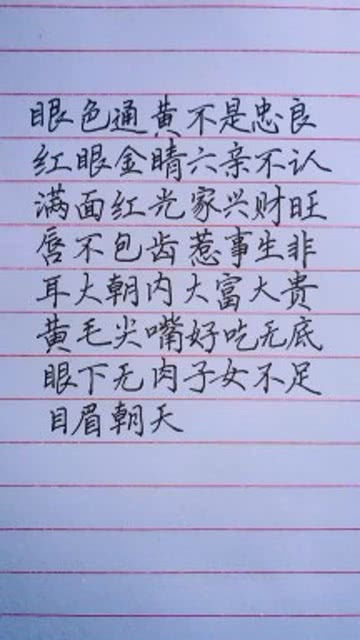 眼色通黄不是忠良
红眼金睛六亲不认
满面红光家兴财旺
唇不包齿惹事生非
耳大朝内大富大贵
黄毛尖嘴好吃无底
眼下无肉子女不足
目眉朝天